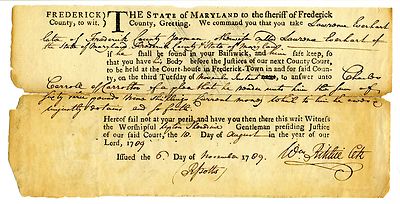 FREDERICK THE STATE OF MARYLAND to the sheriff of Frederick
County, to wit. County, Greeting. We command you that you take Lawrence Everhart
late of Frederick County yeoman otherwise called Lawrence Everhart of
the State of Maryland Frederick County & State of Maryland
if he shall be found in your Bailiwick, and him safe keep, so
that you have his Body before the Justices of our next County Court,
to be held at the Court-house in Frederick-Town in and for said County,
on the third Tuesday of November to answer unto Charles
Carroll of Carrollton of a plea that he render unto him the sum of
sixty nine pounds nine shillings Current money which to him he owes
unjustly detains and so forth
Hereof fail not at your peril, and have you then there this writ Witness
the Worshipful Upton Sheredine Gentleman presiding Justice
of our said Court, the Day of August in the year of our
Lord, 1789
Issued the 6 Day of November 1789. Wm Ritchie Clk
RPotts